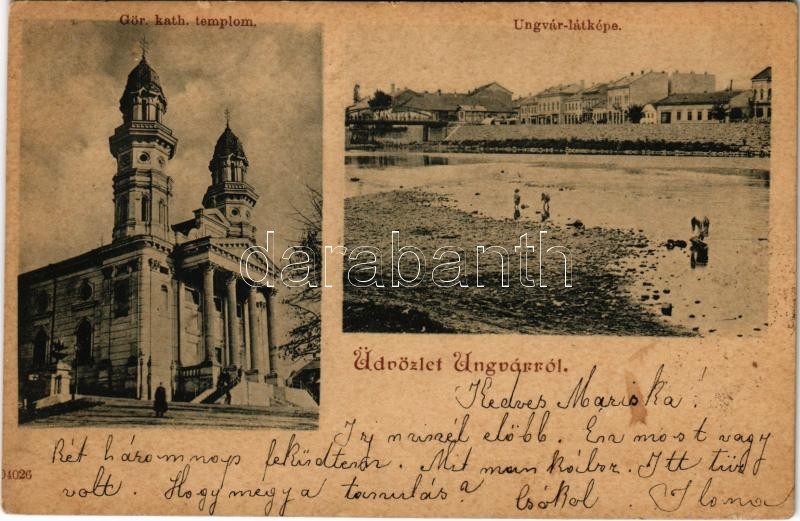 Gör. kath. templom.
Ungvár-látképe.
darabanth
Üdvözlet Ungvárról.
Kedves Mariska!
Irj mielőbb. En most vagy
két három nap feküdtem. Mit
volt. Hogy megy a tanulás? Csókol Ilona
04026